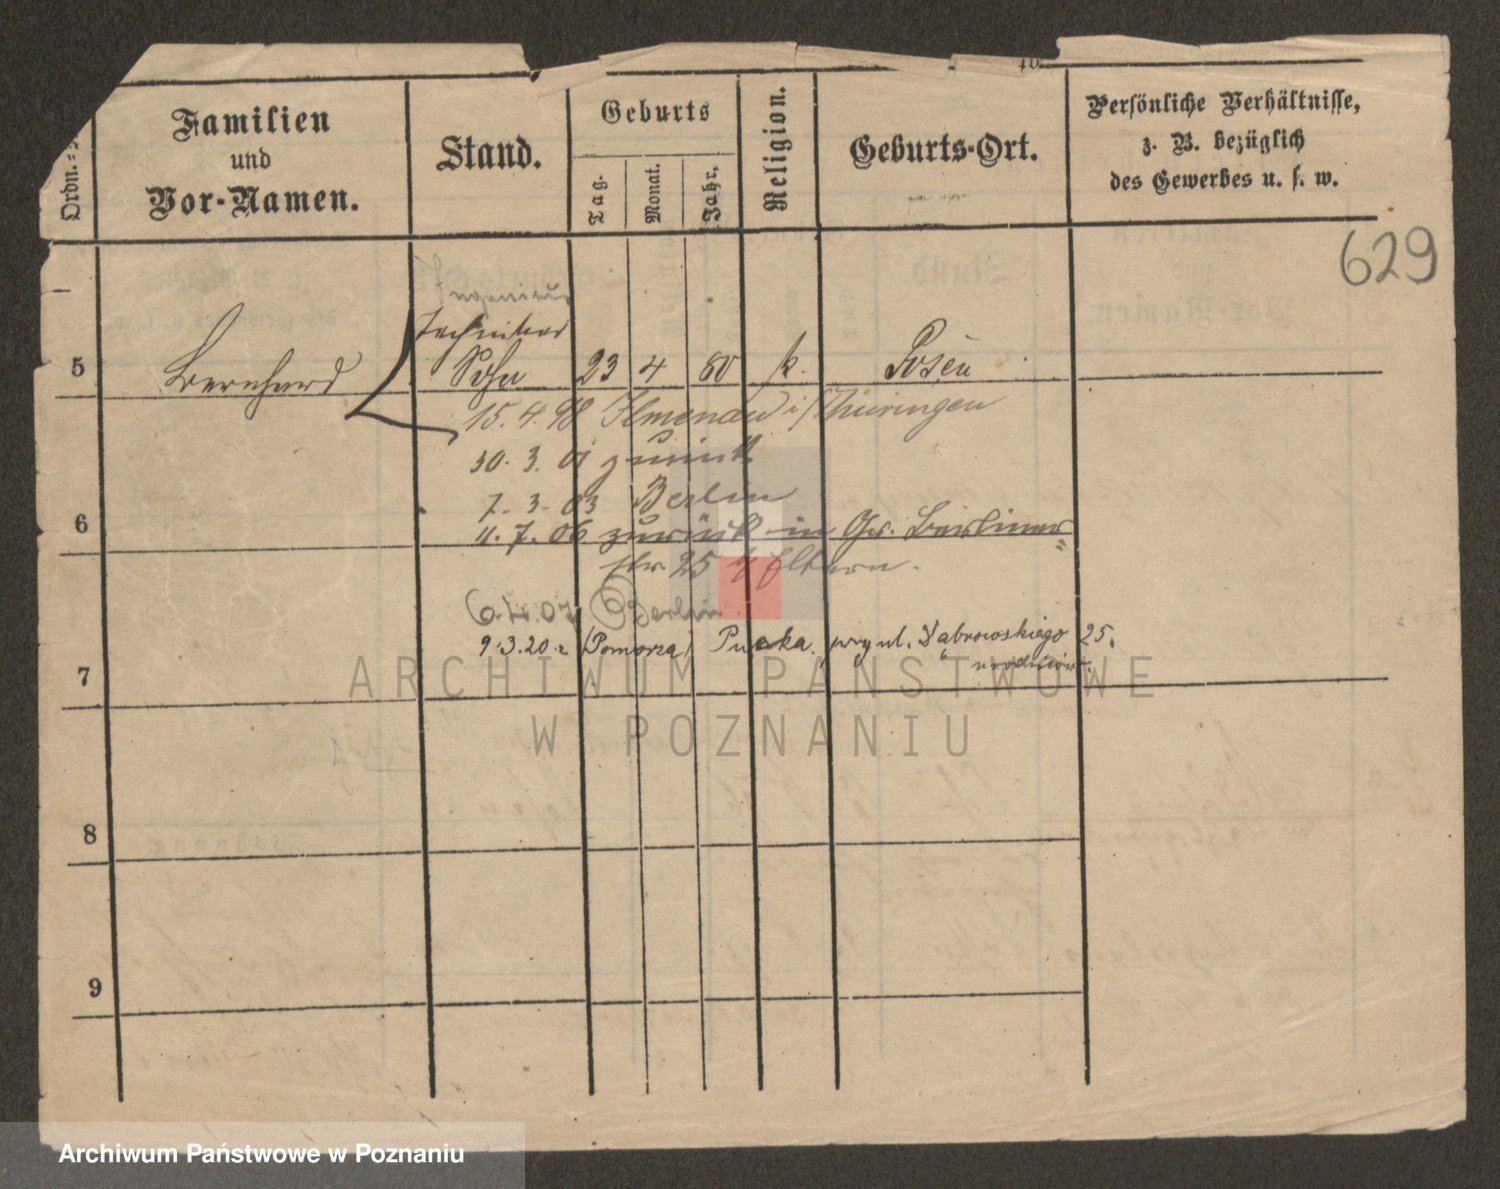 Ordn.=
Familien
und
Vor-Namen.
Stand.
Geburts
Tag.
Monat.
Jahr.
Religion.
Geburts-Ort.
Persönliche Verhältnisse,
z. B. bezüglich
des Gewerbes u. s. w.
629
Ingenieur
Techniker
5 Bernhard Sohn 23 4 80 k. Posen
15. 4. 98 Ilmenau i/Thüringen
30. 3. 01 zurück
7. 3. 03 Berlin
6
11. 7. 06 zurück in Gr. Berliner
str. 25 z/ Eltern.
6. 4. 07 Berlin
9.3.20. z (Pomorza) Pucka. przy ul. Dąbrowskiego 25.
u rodziców.
7
8
9
ARCHIWUM PAŃSTWOWE
W POZNANIU
Archiwum Państwowe w Poznaniu